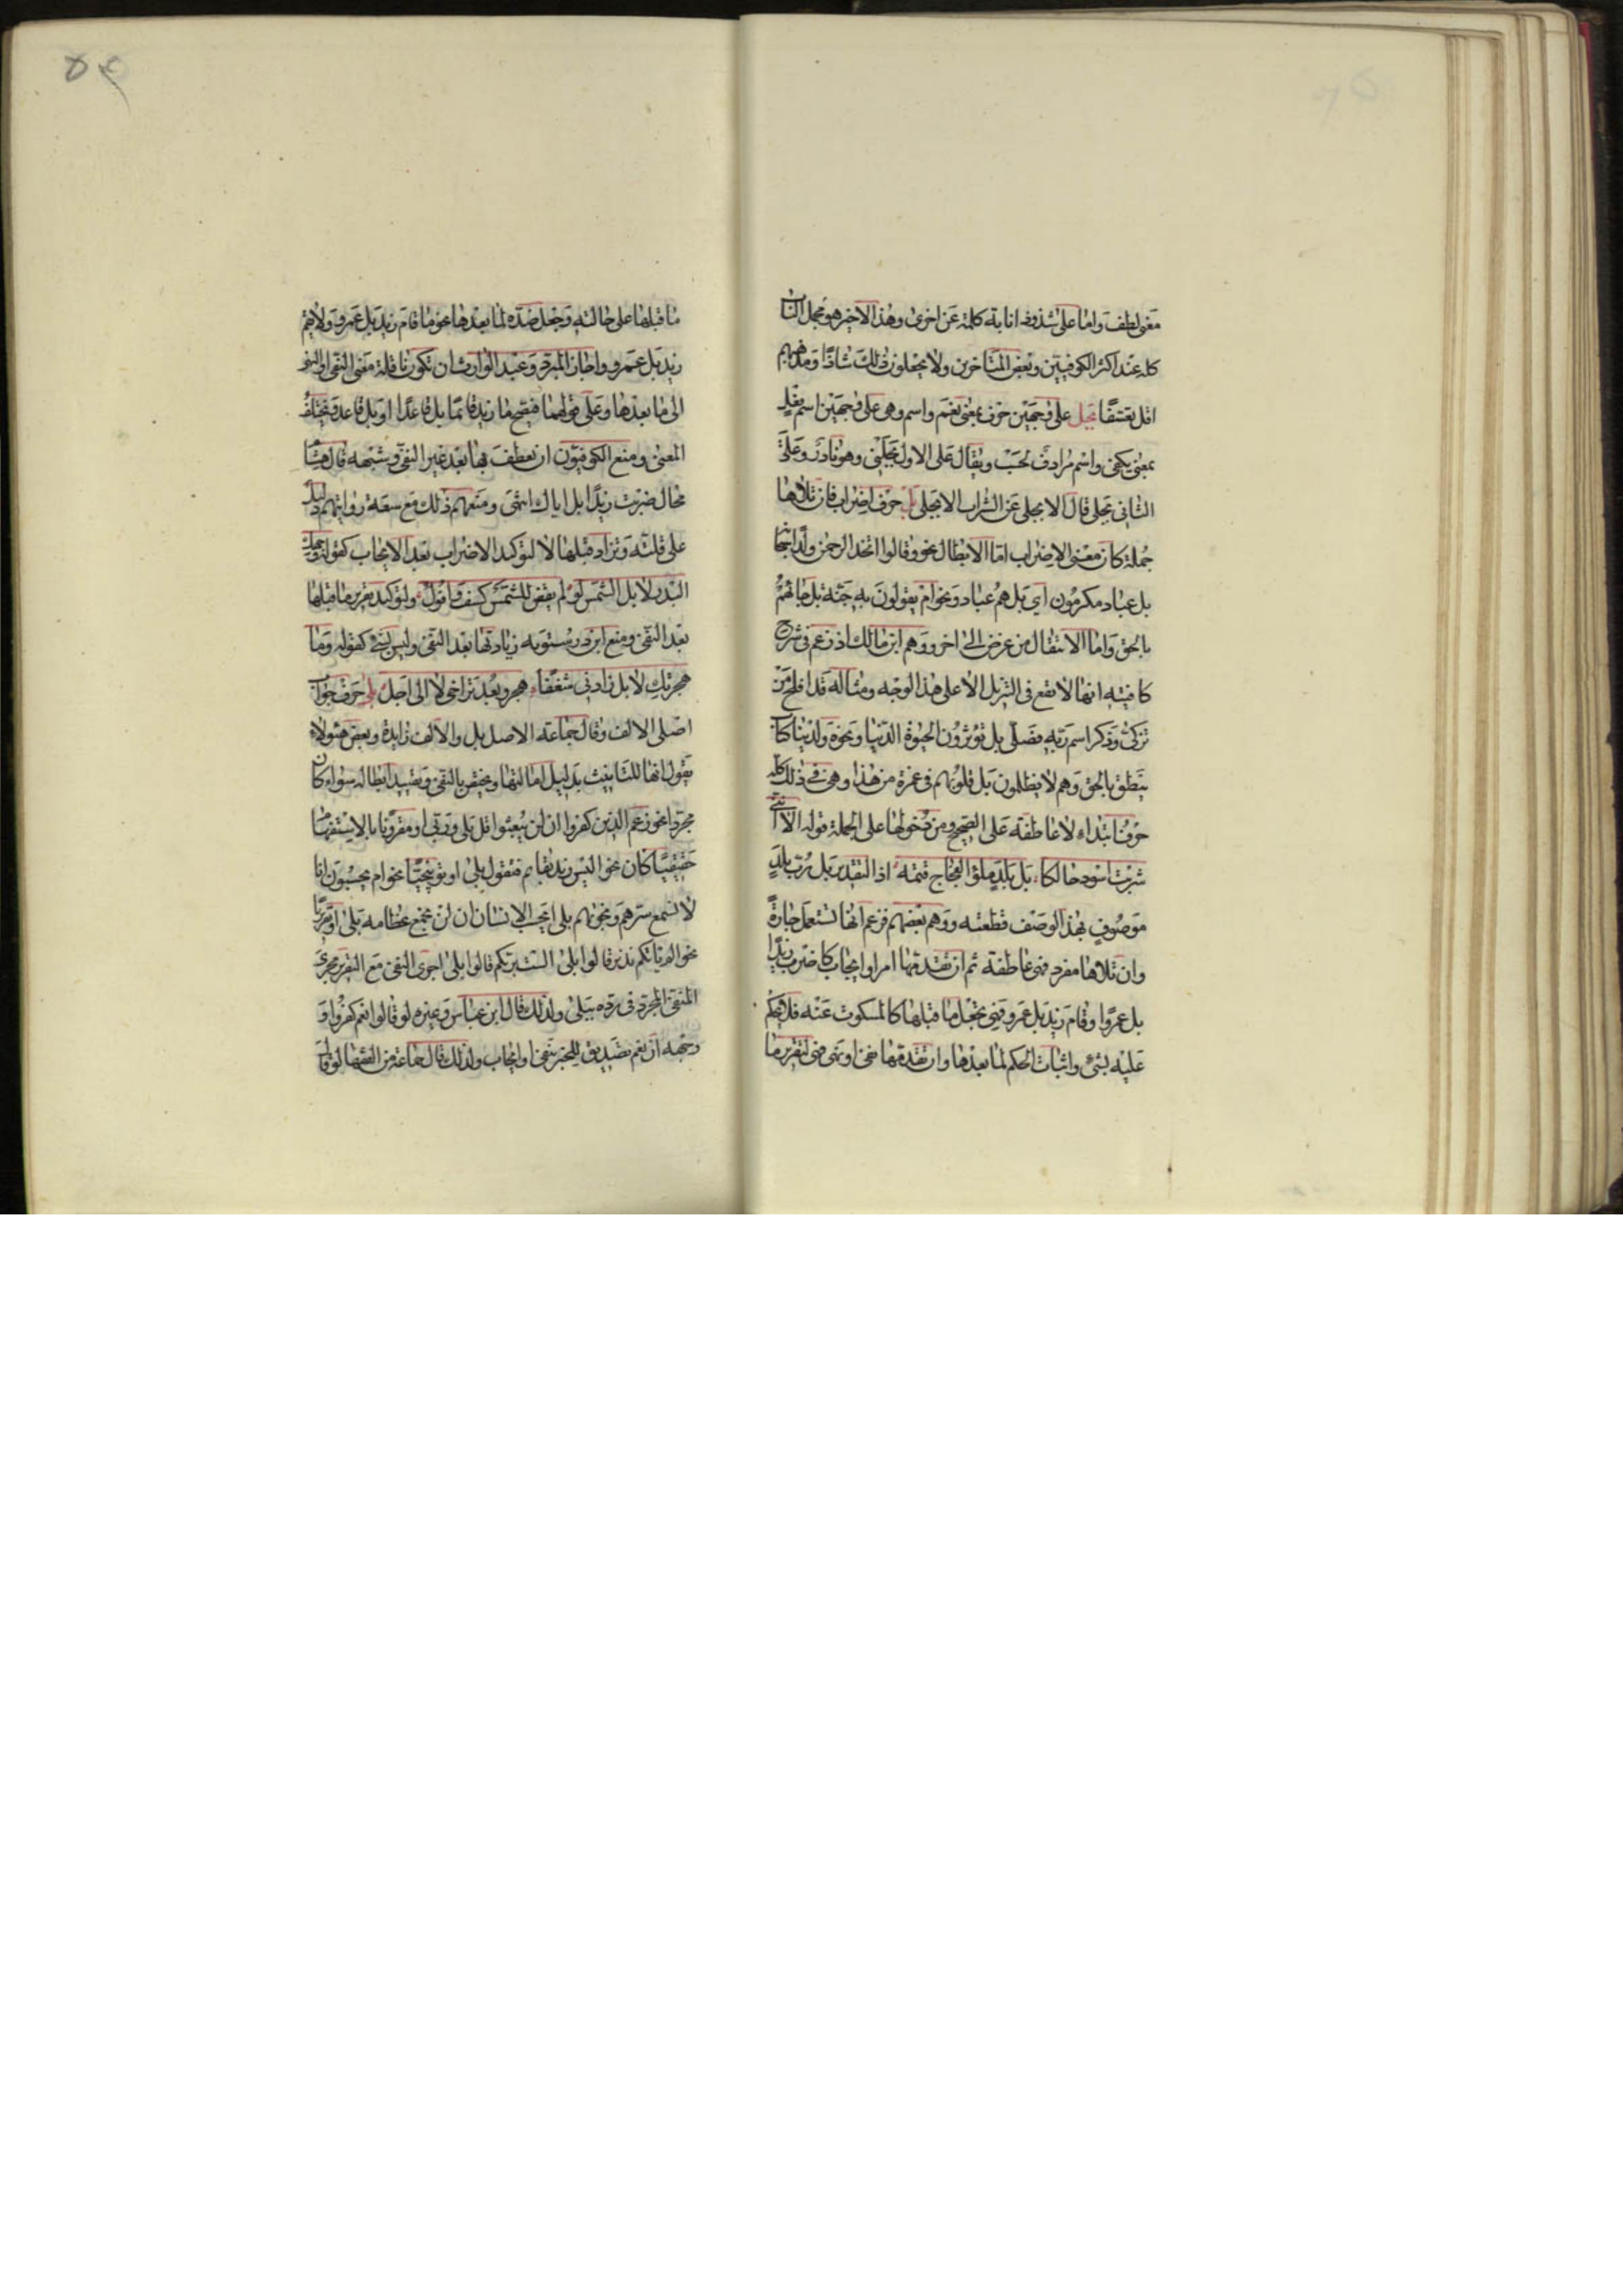 معنى لطف واما على شذوذ انابة كلمة عن اخرى وهذا الاخير هو مجمل الباب
كله عند اكثر الكوفيين وبعض المتاخرين ولا يجعلون ذلك شاذا ومذهبهم
اقل تعسفا بجل على وجهين حرف بمعنى نعم واسم وهى على وجهين اسم فعل
بمعنى يكفى واسم مرادف لحسب ويقال على الاول بجلنى وهو نادر وعلى
الثانى بجلى قال الا بجلى من الشراب الا بجلى بل حرف اضراب فان تلاها
جملة كان معنى الاضراب اما الابطال نحو وقالوا اتخذ الرحمن ولدا سبحانه
بل عباد مكرمون اي بل هم عباد ونحو ام يقولون به جنة بل جائهم
بالحق واما الانتقال من غرض الى اخر ووهم ابن مالك اذ زعم فى شرح
كافيته انها لا تقع فى التنزيل الا على هذا الوجه ومثاله قد افلح من
تزكى وذكر اسم ربه فصلى بل تؤثرون الحيوة الدنيا ونحو ولدينا كتاب
ينطق بالحق وهم لا يظلمون بل قلوبهم فى غمرة من هذا وهى فى ذلك كله
حرف ابتداء لا عاطفة على الصحيح ومن دخولها على الجملة قوله
بل بلد ملؤ الفجاج قتمه اذ التقدير بل رب بلد
موصوف بهذا الوصف قطعته ووهم بعضهم فزعم انها تستعمل جارة
وان تلاها مفرد فهى عاطفة ثم ان تقدمها امر او ايجاب كاضرب زيدا
بل عمروا وقام زيد بل عمرو فهى تجعل ما قبلها كالمسكوت عنه فلا يحكم
عليه بشئ واثبات الحكم لما بعدها وان تقدمها نفى او نهى فهى لتقرير ما
ما قبلها على حالته وجعل ضده لما بعدها نحو ما قام زيد بل عمرو ولا يقم
زيد بل عمرو واجاز المبرد وعبد الوارث ان تكون ناقلة معنى النفى والنهى
الى ما بعدها وعلى قولهما فيصح ما زيد قائما بل قاعدا او بل قاعد ويختلف
المعنى ومنع الكوفيون ان تعطف بها بعد غير النفى وشبهه قال هشام
محال ضربت زيدا بل اياك انتهى ومنعهم ذلك مع سعة روايتهم دليل
على قلته وتزاد قبلها لا لتوكيد الاضراب بعد الايجاب كقوله وجهك
البدر لا بل الشمس لو لم يقض للشمس كسفة وافول ولتوكيد تقرير ما قبلها
بعد النفى ومنع ابن درستويه زيادتها بعد النفى وليس بشئ كقوله وما
هجرتك لا بل زادنى شغفا هجر وبعد تراخى لا الى اجل بلى حرف جواب
اصلى الالف وقال جماعة الاصل بل والالف زايدة وبعض هئولاء
يقول انها للتانيث بدليل امالتها ويختص بالنفى وتفيد ابطاله سواء كان
مجردا نحو زعم الذين كفروا ان لن يبعثوا قل بلى وربى او مقرونا بالاستفهام
حقيقيا كان نحو اليس زيد بقائم فتقول بلى او توبيخيا نحو ام يحسبون انا
لا نسمع سرهم ونجويهم بلى ايحسب الانسان ان لن نجمع عظامه بلى او تقريريا
نحو الم ياتكم نذير قالوا بلى الست بربكم قالوا بلى اجرى النفى مع التقرير مجرى
النفى المجرد فى رده ببلى ولذلك قال ابن عباس وغيره لو قالوا نعم كفروا و
وجهه ان نعم تصديق للمخبر بنفى او ايجاب ولذلك قال جماعة من الفقهاء لو قال